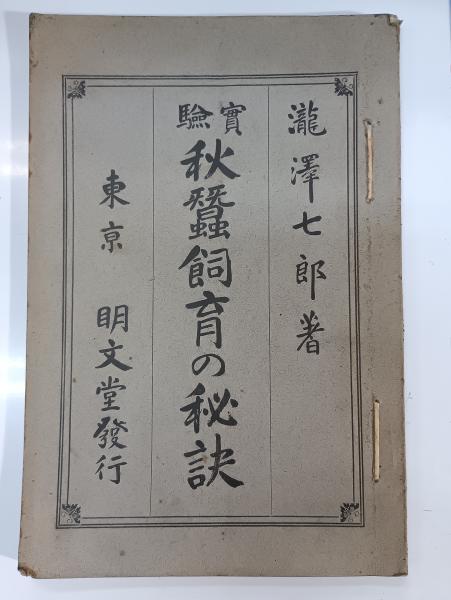 瀧澤七郎著
實驗
秋蠶飼育の秘訣
東京 明文堂發行